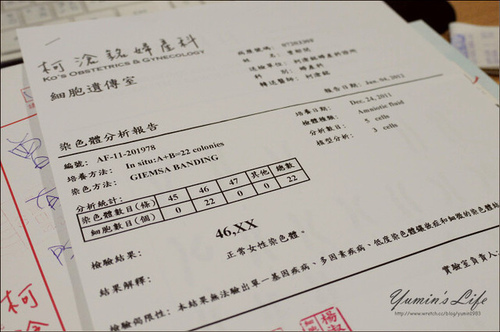 柯滄銘婦產科
KO'S OBSTETRICS & GYNECOLOGY
細胞遺傳室
病歷號碼: 97203309
報告日期: Jan. 04, 2012
染色體分析報告
編號: AF-11-201978
培養方法: In situ:A+B=22 colonies
染色方法: GIEMSA BANDING
培養日期: Dec. 24, 2011
檢體種類: Amniotic fluid
分析數目: 5 cells
核型分析: 3 cells
分析統計:
染色體數目(條) 45 46 47 其他 總數
細胞數目(個) 0 22 0 0 22
46,XX
檢驗結果: 正常女性染色體。
結果解釋:
檢驗侷限性: 本結果無法驗出單一基因疾病、多因素疾病、低度染色體鑲嵌症和細微的染色體結
實驗室負責人:
柯
楊淑
Yumin's Life